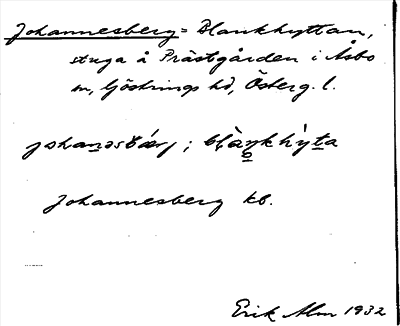 Johannesberg = Blankhyttan,
stuga å Prästgården i Åsbo
sn, Göstrings hd, Österg. l.
Johannesberg kb.
Erik Alm 1932